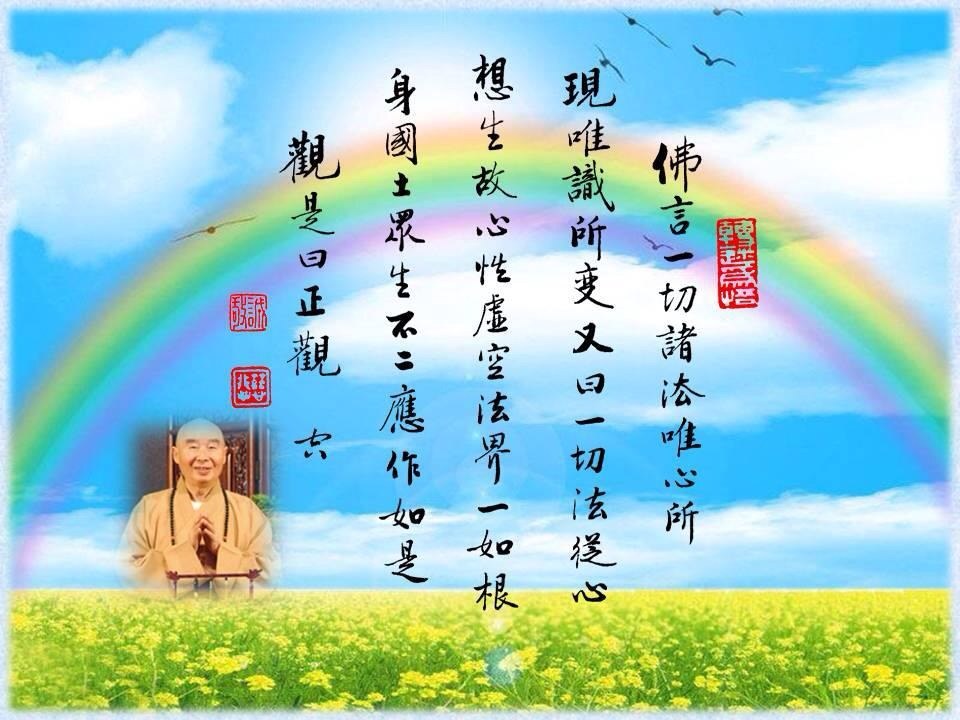 轉迷為悟
佛言一切諸法唯心所
現唯識所变又曰一切法從心
想生故心性虛空法界一如根
身國土眾生不二應作如是
觀是曰正觀
誠敬